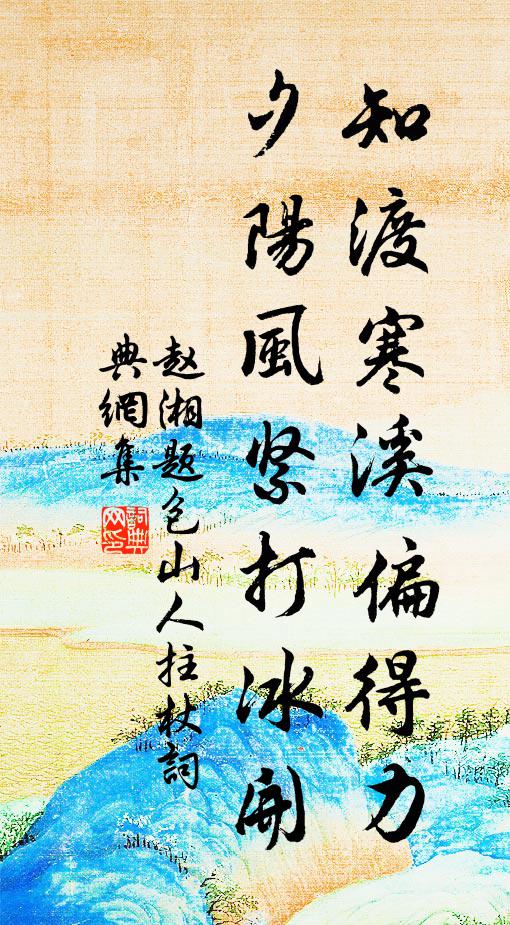 知渡寒溪偏得力
夕陽風紧打冰開
赵湘题包山人拄杖詞
典網集